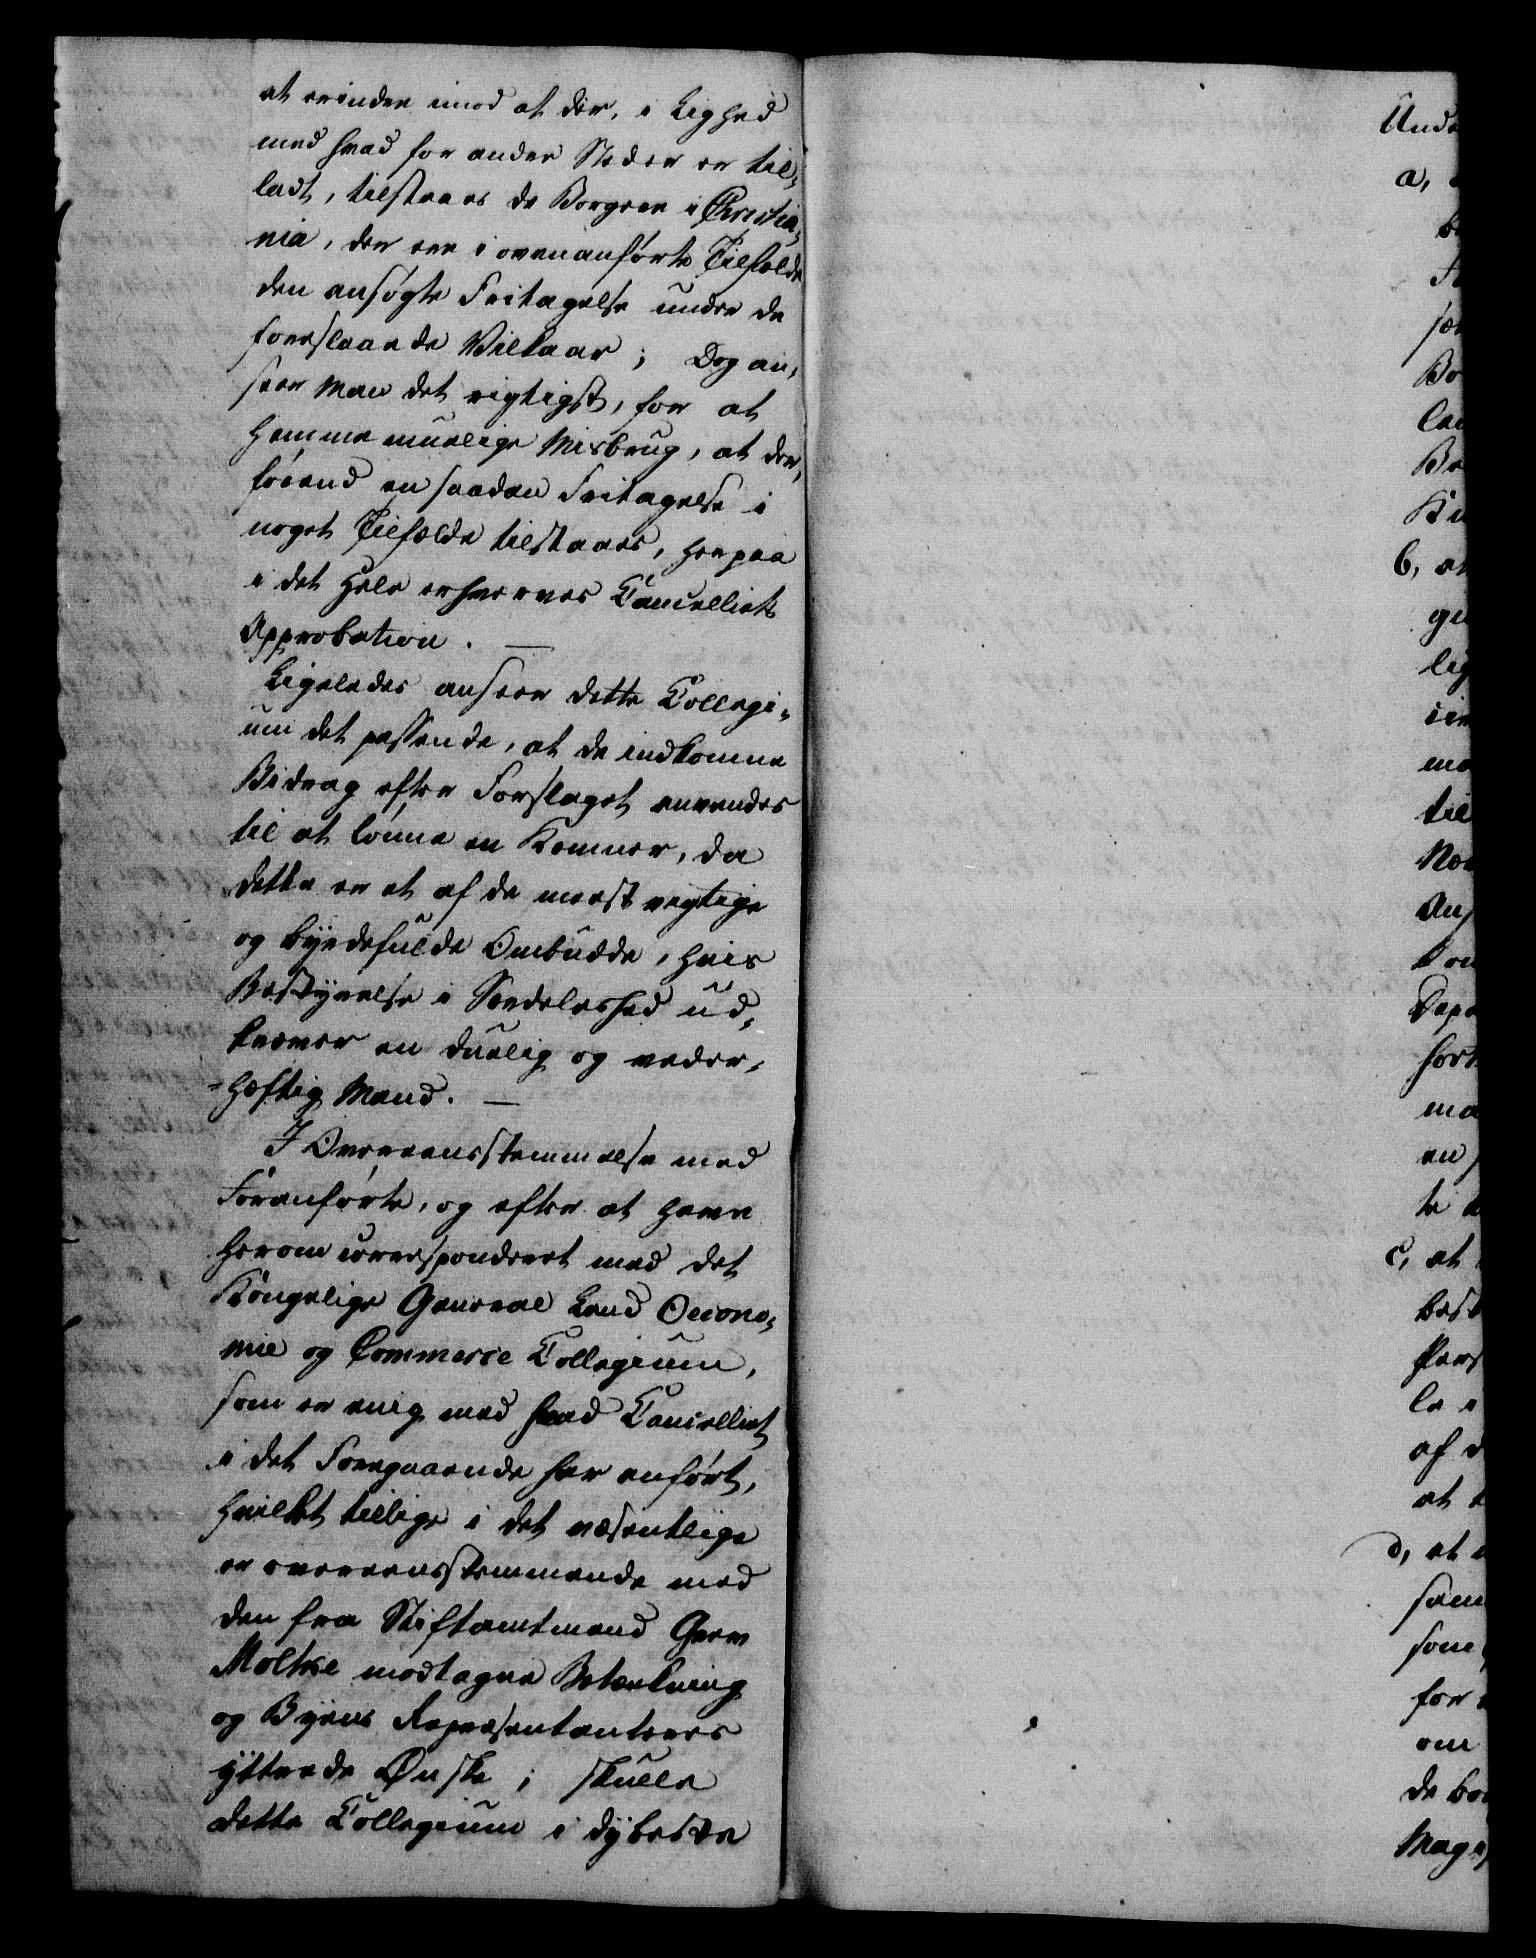 at erindre imod at der, i Lighed
med hvad for andre Steder er til-
ladt, tilstaaes de Borgere i Christia-
nia, der ere i ovenanførte Tilfælde
den ansøgte Fritagelse under de
foreslaaede Vilkaar; Dog an-
seer man det rigtigst, for at
hemme muelige Misbrug, at der,
førend en saadan Fritagelse i
noget Tilfælde tilstaaes, herpaa
i det Hele erhverves Cancelliets
Approbation. —
Ligeledes anseer dette Collegi-
um det passende, at de indkomne
Bidrag efter Forslaget anvendes
til at lønne en Kemner, da
dette er et af de meest vigtige
og byrdefulde Ombudde, hvis
Bestyrelse i Særdeleshed ud-
kræver en duelig og veder-
hæftig Mand. —
I Overeensstemmelse med
Foranførte, og efter at have
herom correspondert med det
Kongelige General Land Oecono-
mie og Commerce Collegium,
som er enig med hvad Cancelliet
i det Foregaaende har anført,
hvilket tillige i det væsentlige
er overeensstemmende med
den fra Stiftamtmand Greve
Moltke modtagne Betænkning
og Byens Repræsentanteres
yttrede Ønske; skulle
dette Collegium i dybeste
Unde
a,
sæ
Bo
b, at
gu
lig
mo
til
Næ
Ans
kon
Depa
fort
ma
en
te
c, at
best
Pers
le
af d
at
d, at
sam
som
for
om
de bo
Mag